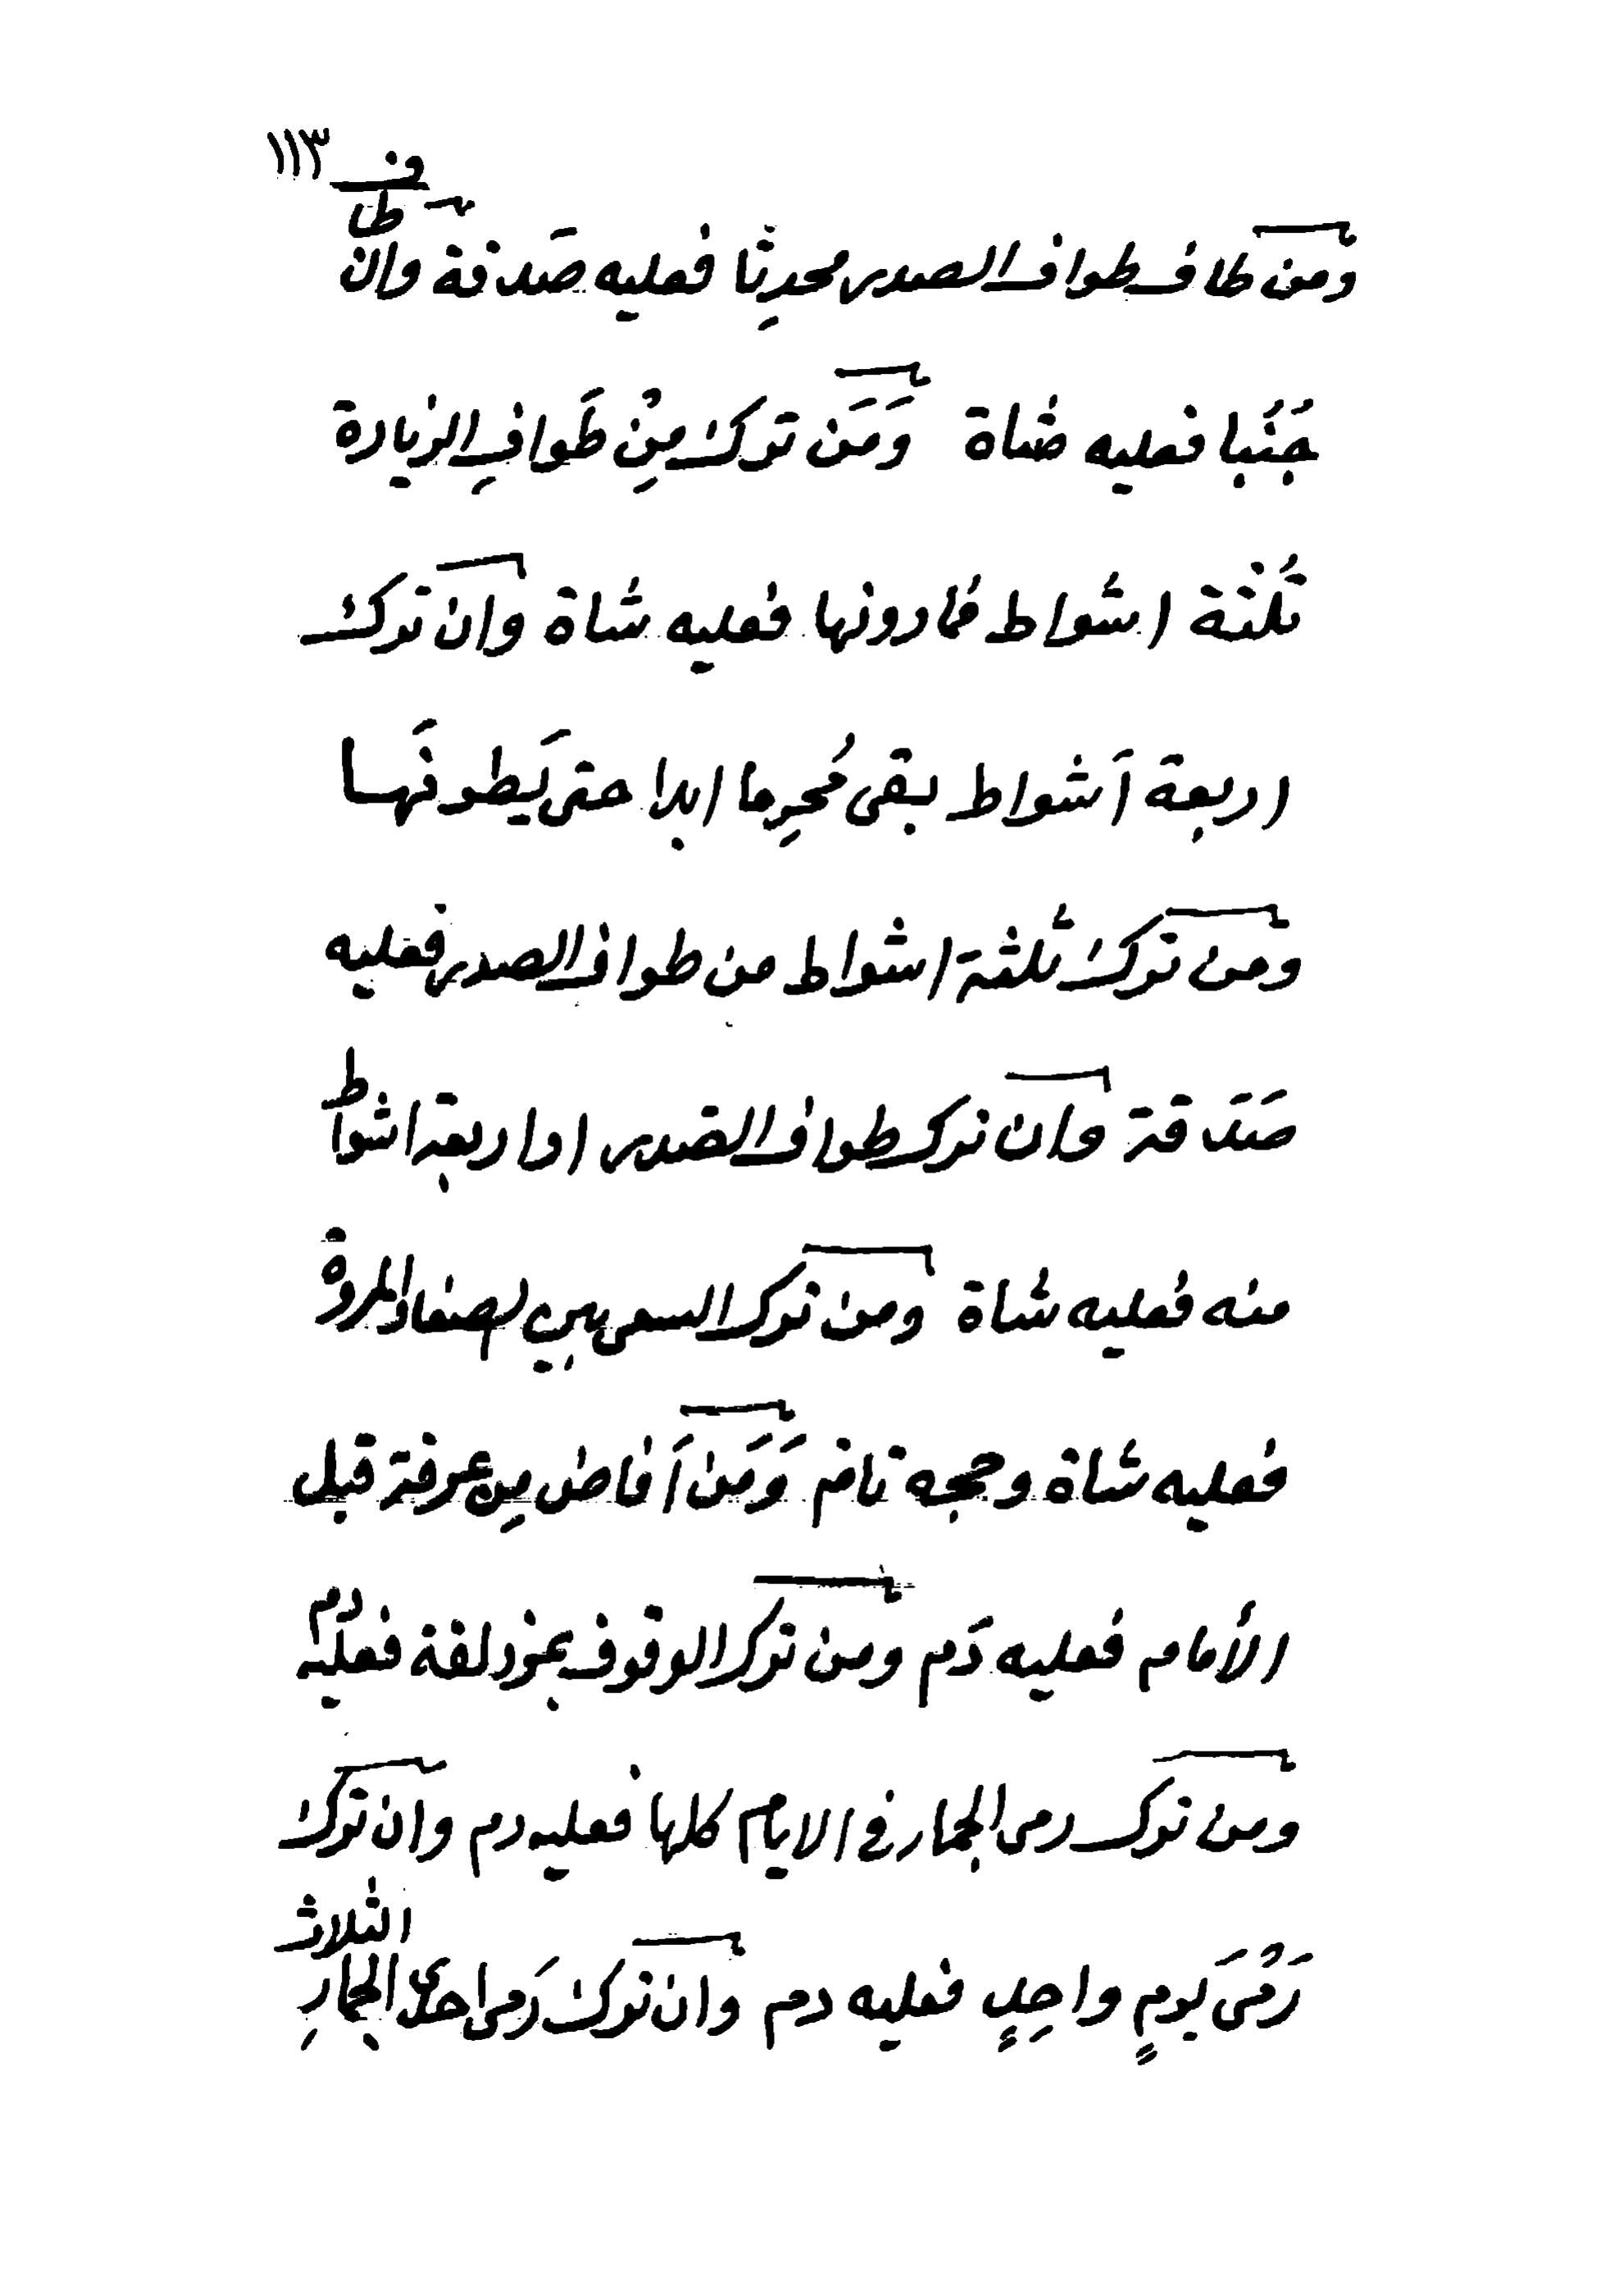 ١١٣
ومن طاف طواف الصدر محدِثا فعليه صَدقة وان طاف
جَنُبا فعليه شاة وَمَن ترك مِنْ طَوافِ الزيادة
ثلُثة اشواط فما دونها فعليه شاة وان ترك
اربعة أشواط بقى مُحرِما ابدا حتى يَطوفَهـا
ومن ترك ثلُثة اشواط من طواف الصدر فعليه
صَدَقة وان ترك طواف الصدر او اربعة اشواط
منه فعليه شاة ومن ترك السعى بين الصفا والمروة
فعليه شاة وحجه تام وَمَن أَفاض مِن عرفة قبل
الأمام فعليه دَم ومن ترك الوقوف بمزدلفة فعليه دم
ومن ترك رمى الجمار فى الايام كلها فعليه دم وان ترك
رَمْىَ يومٍ واحِدٍ فعليه دم وان ترك رَمى احدى الجمارِ الثلاث